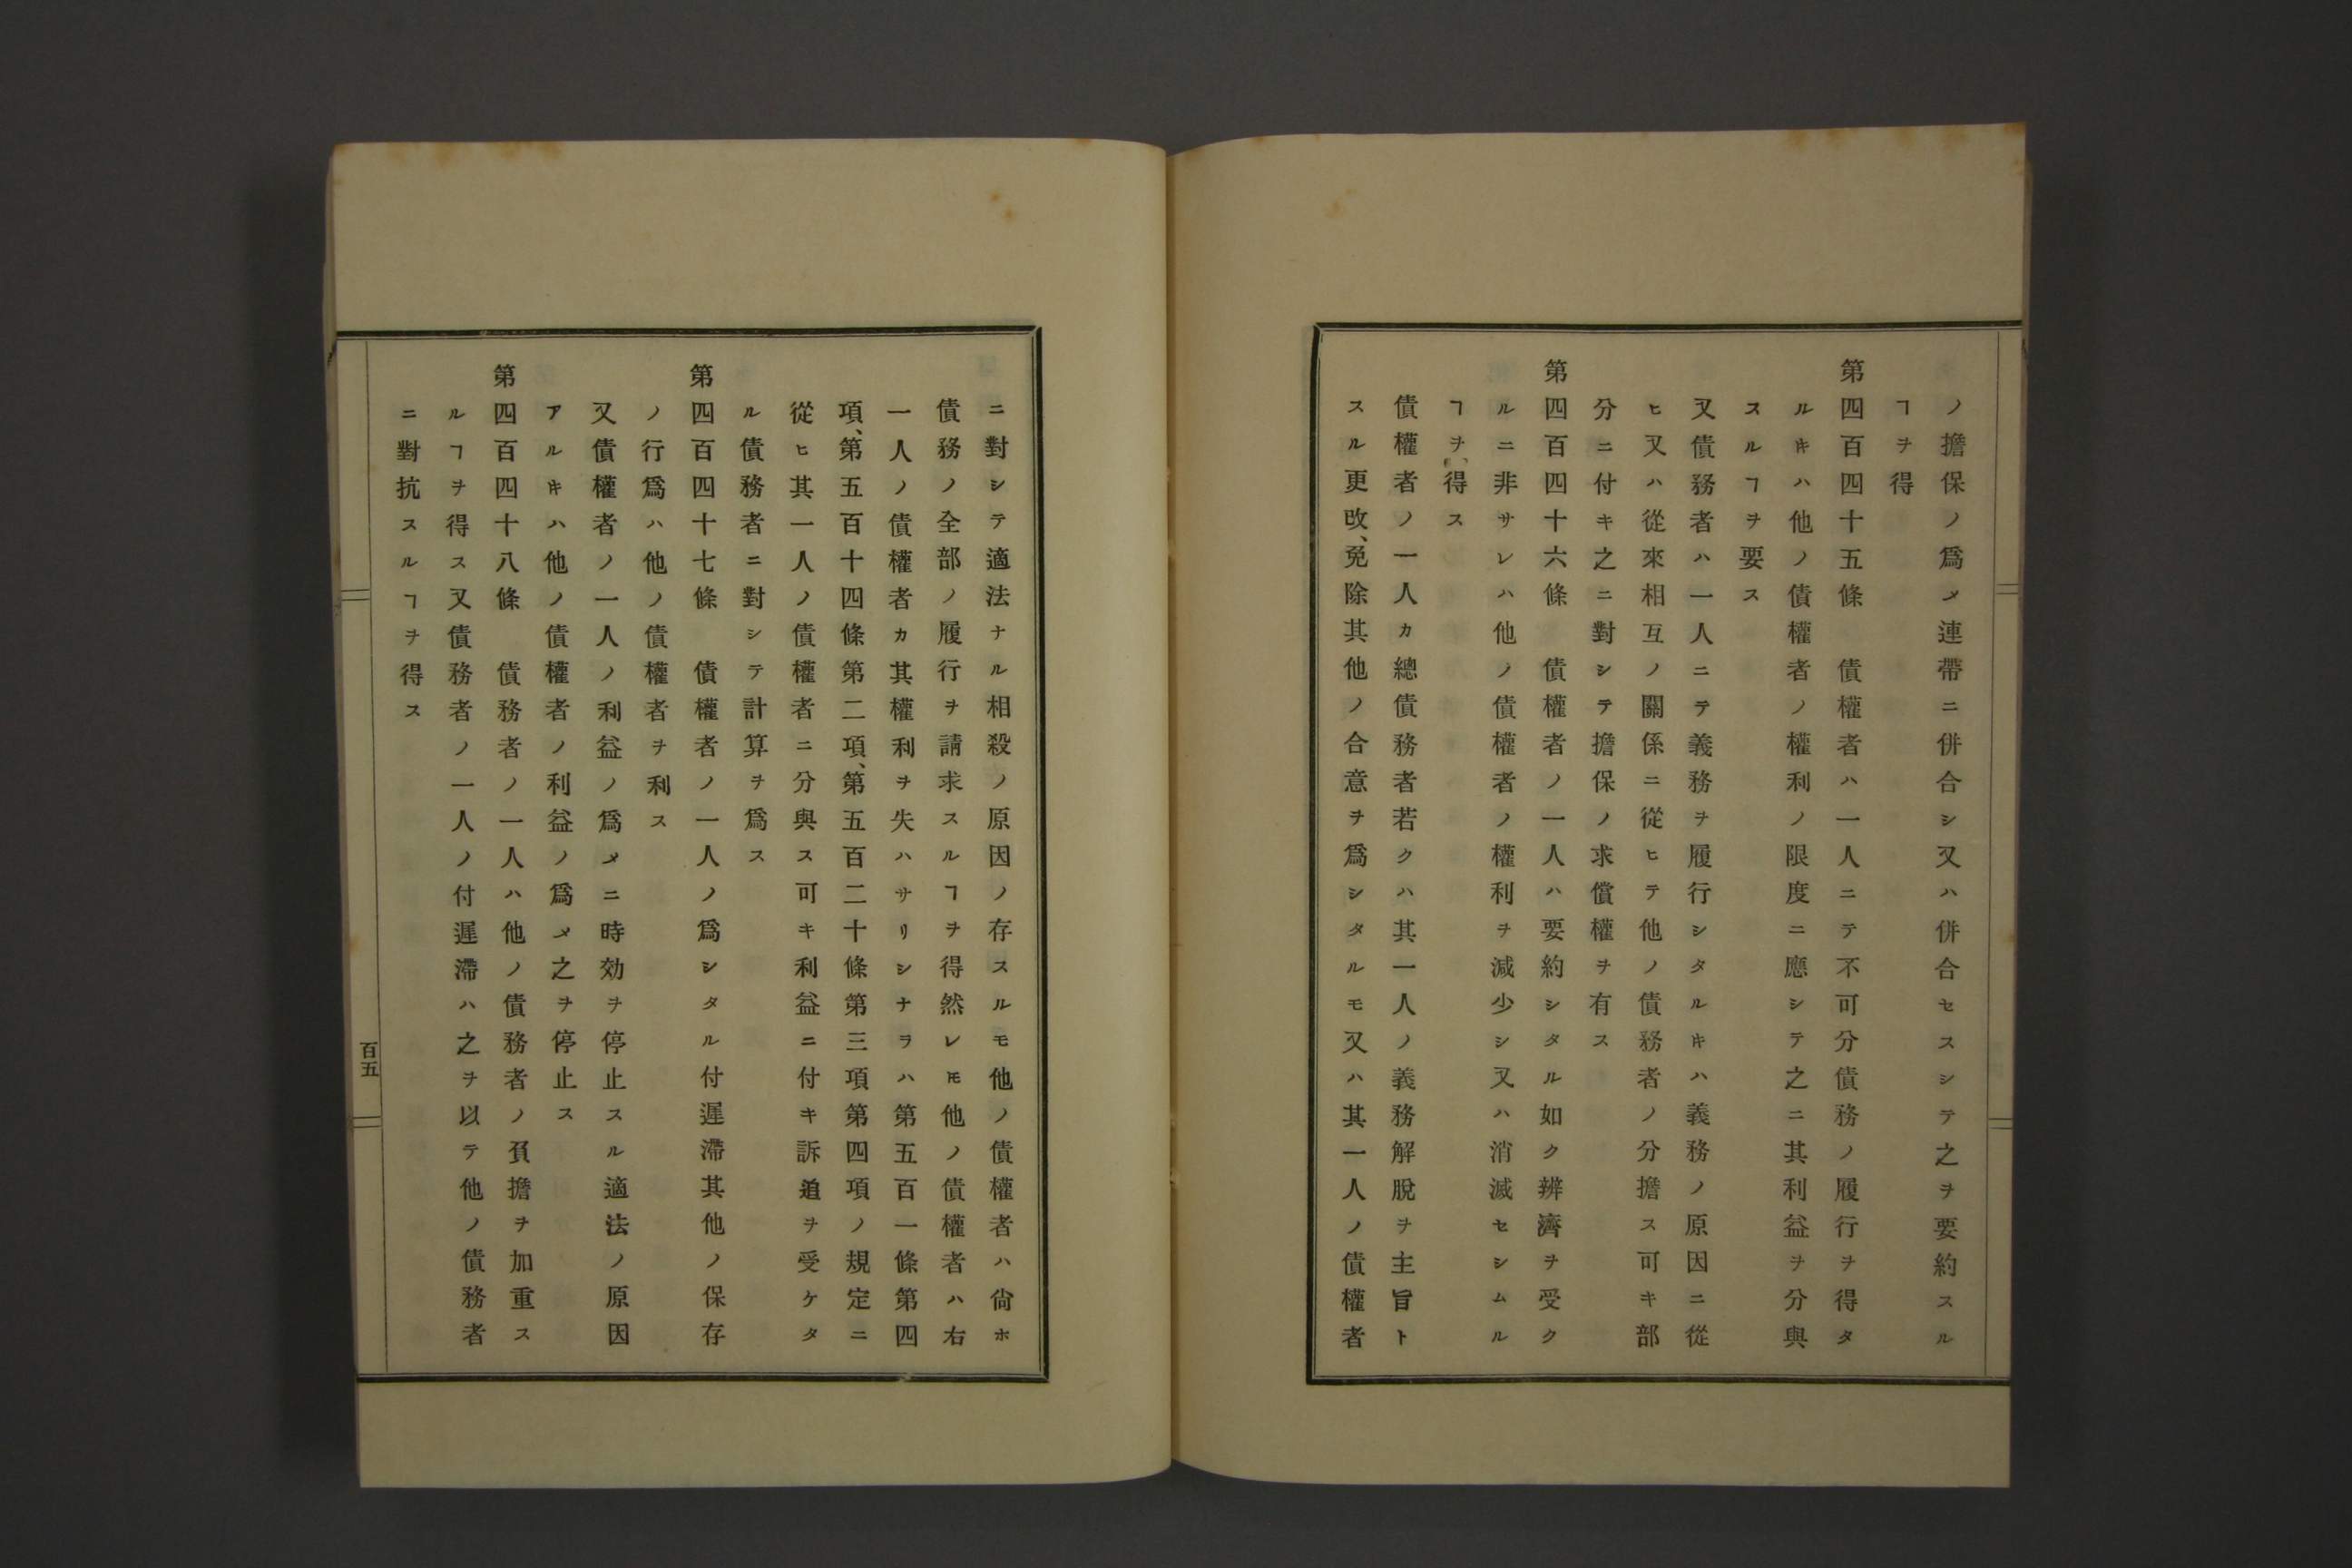 ノ擔保ノ爲メ連帶ニ併合シ又ハ併合セスシテ之ヲ要約スル
ヿヲ得
第四百四十五條　債權者ハ一人ニテ不可分債務ノ履行ヲ得タ
ルキハ他ノ債權者ノ權利ノ限度ニ應シテ之ニ其利益ヲ分與
スルヿヲ要ス
又債務者ハ一人ニテ義務ヲ履行シタルキハ義務ノ原因ニ從
ヒ又ハ從來相互ノ關係ニ從ヒテ他ノ債務者ノ分擔ス可キ部
分ニ付キ之ニ對シテ擔保ノ求償權ヲ有ス
第四百四十六條　債權者ノ一人ハ要約シタル如ク辨濟ヲ受ク
ルニ非サレハ他ノ債權者ノ權利ヲ減少シ又ハ消滅セシムル
ヿヲ得ス
債權者ノ一人カ總債務者若クハ其一人ノ義務解脫ヲ主旨ト
スル更改、免除其他ノ合意ヲ爲シタルモ又ハ其一人ノ債權者
ニ對シテ適法ナル相殺ノ原因ノ存スルモ他ノ債權者ハ尙ホ
債務ノ全部ノ履行ヲ請求スルヿヲ得然レ𪜈他ノ債權者ハ右
一人ノ債權者カ其權利ヲ失ハサリシナラハ第五百一條第四
項、第五百十四條第二項、第五百二十條第三項第四項ノ規定ニ
從ヒ其一人ノ債權者ニ分與ス可キ利益ニ付キ訴追ヲ受ケタ
ル債務者ニ對シテ計算ヲ爲ス
第四百四十七條　債權者ノ一人ノ爲シタル付遲滯其他ノ保存
ノ行爲ハ他ノ債權者ヲ利ス
又債權者ノ一人ノ利益ノ爲メニ時効ヲ停止スル適法ノ原因
アルキハ他ノ債權者ノ利益ノ爲メ之ヲ停止ス
第四百四十八條　債務者ノ一人ハ他ノ債務者ノ負擔ヲ加重ス
ルヿヲ得ス又債務者ノ一人ノ付遲滯ハ之ヲ以テ他ノ債務者
ニ對抗スルヿヲ得ス
百五